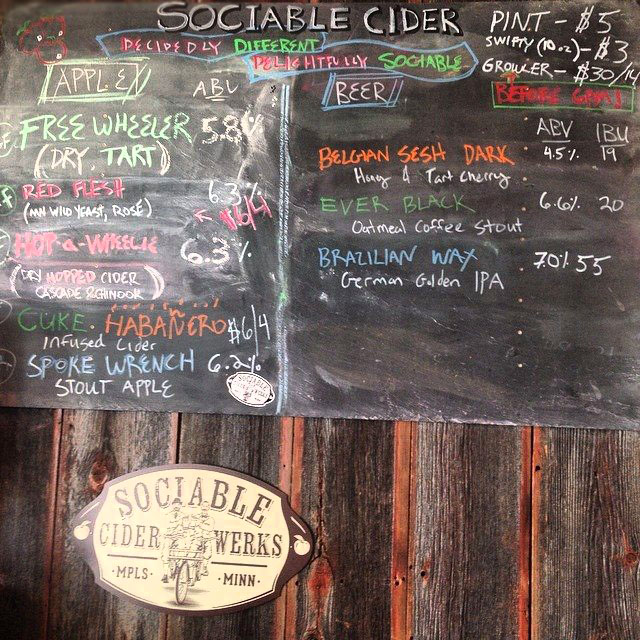 SOCIABLE CIDER
DECIDEDLY DIFFERENT
DELIGHTFULLY SOCIABLE
PINT - $5
SWIFTY (10 oz) - $3
GROWLER - $30/14
BEFORE 6PM!
APPLE
ABV
FREE WHEELER 5.8%
(DRY, TART)
RED FLESH 6.3%
(MN WILD YEAST, ROSÉ) $6/4
HOP-A-WHEELIE 6.3%
(DRY HOPPED CIDER
CASCADE & CHINOOK)
CUKE HABAÑERO $6/4
Infused Cider
SPOKE WRENCH 6.2%
STOUT APPLE
BEER
ABV IBU
BELGIAN SESH DARK 4.5% 19
Honey & Tart Cherry
EVER BLACK 6.6% 20
Oatmeal Coffee Stout
BRAZILIAN WAX 7.0% 55
German Golden IPA
SOCIABLE
SOCIABLE
CIDER WERKS
·MPLS· ·MINN·